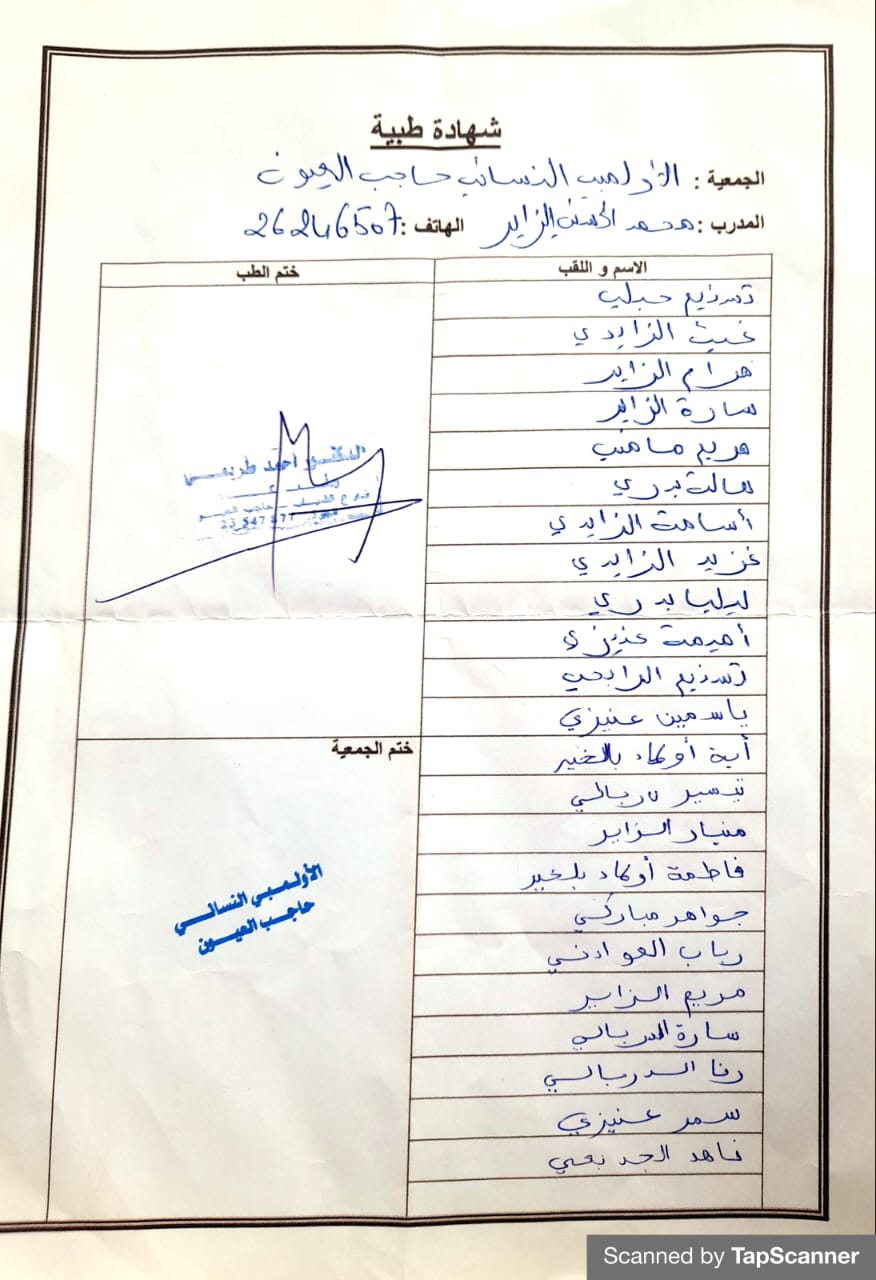 شهادة طبية
الجمعية : الأولمبي النسائي حاجب العيون
المدرب : محمد الزاير الهاتف : 26246507
الاسم و اللقب
ختم الطب
تسنيم حبلي
غيث الزايدي
مرام الزاير
سارة الزاير
مريم
هالة بدري
أسامة الزايدي
الزايدي
ليليا بدري
أميمة عنيزي
تسنيم الرابحي
ياسمين عنيزي
أية أولاد بالخير
تيسير دربالي
منيار الزاير
فاطمة أولاد بلخير
جواهر مباركي
رباب العوادني
مريم الزاير
سارة الدربالي
رنا الدربالي
سمر عنيزي
ناهد الجديعي
الدكتور أحمد طريفي
حاجب العيون
23 547 877
ختم الجمعية
الأولمبي النسائي
حاجب العيون
Scanned by TapScanner